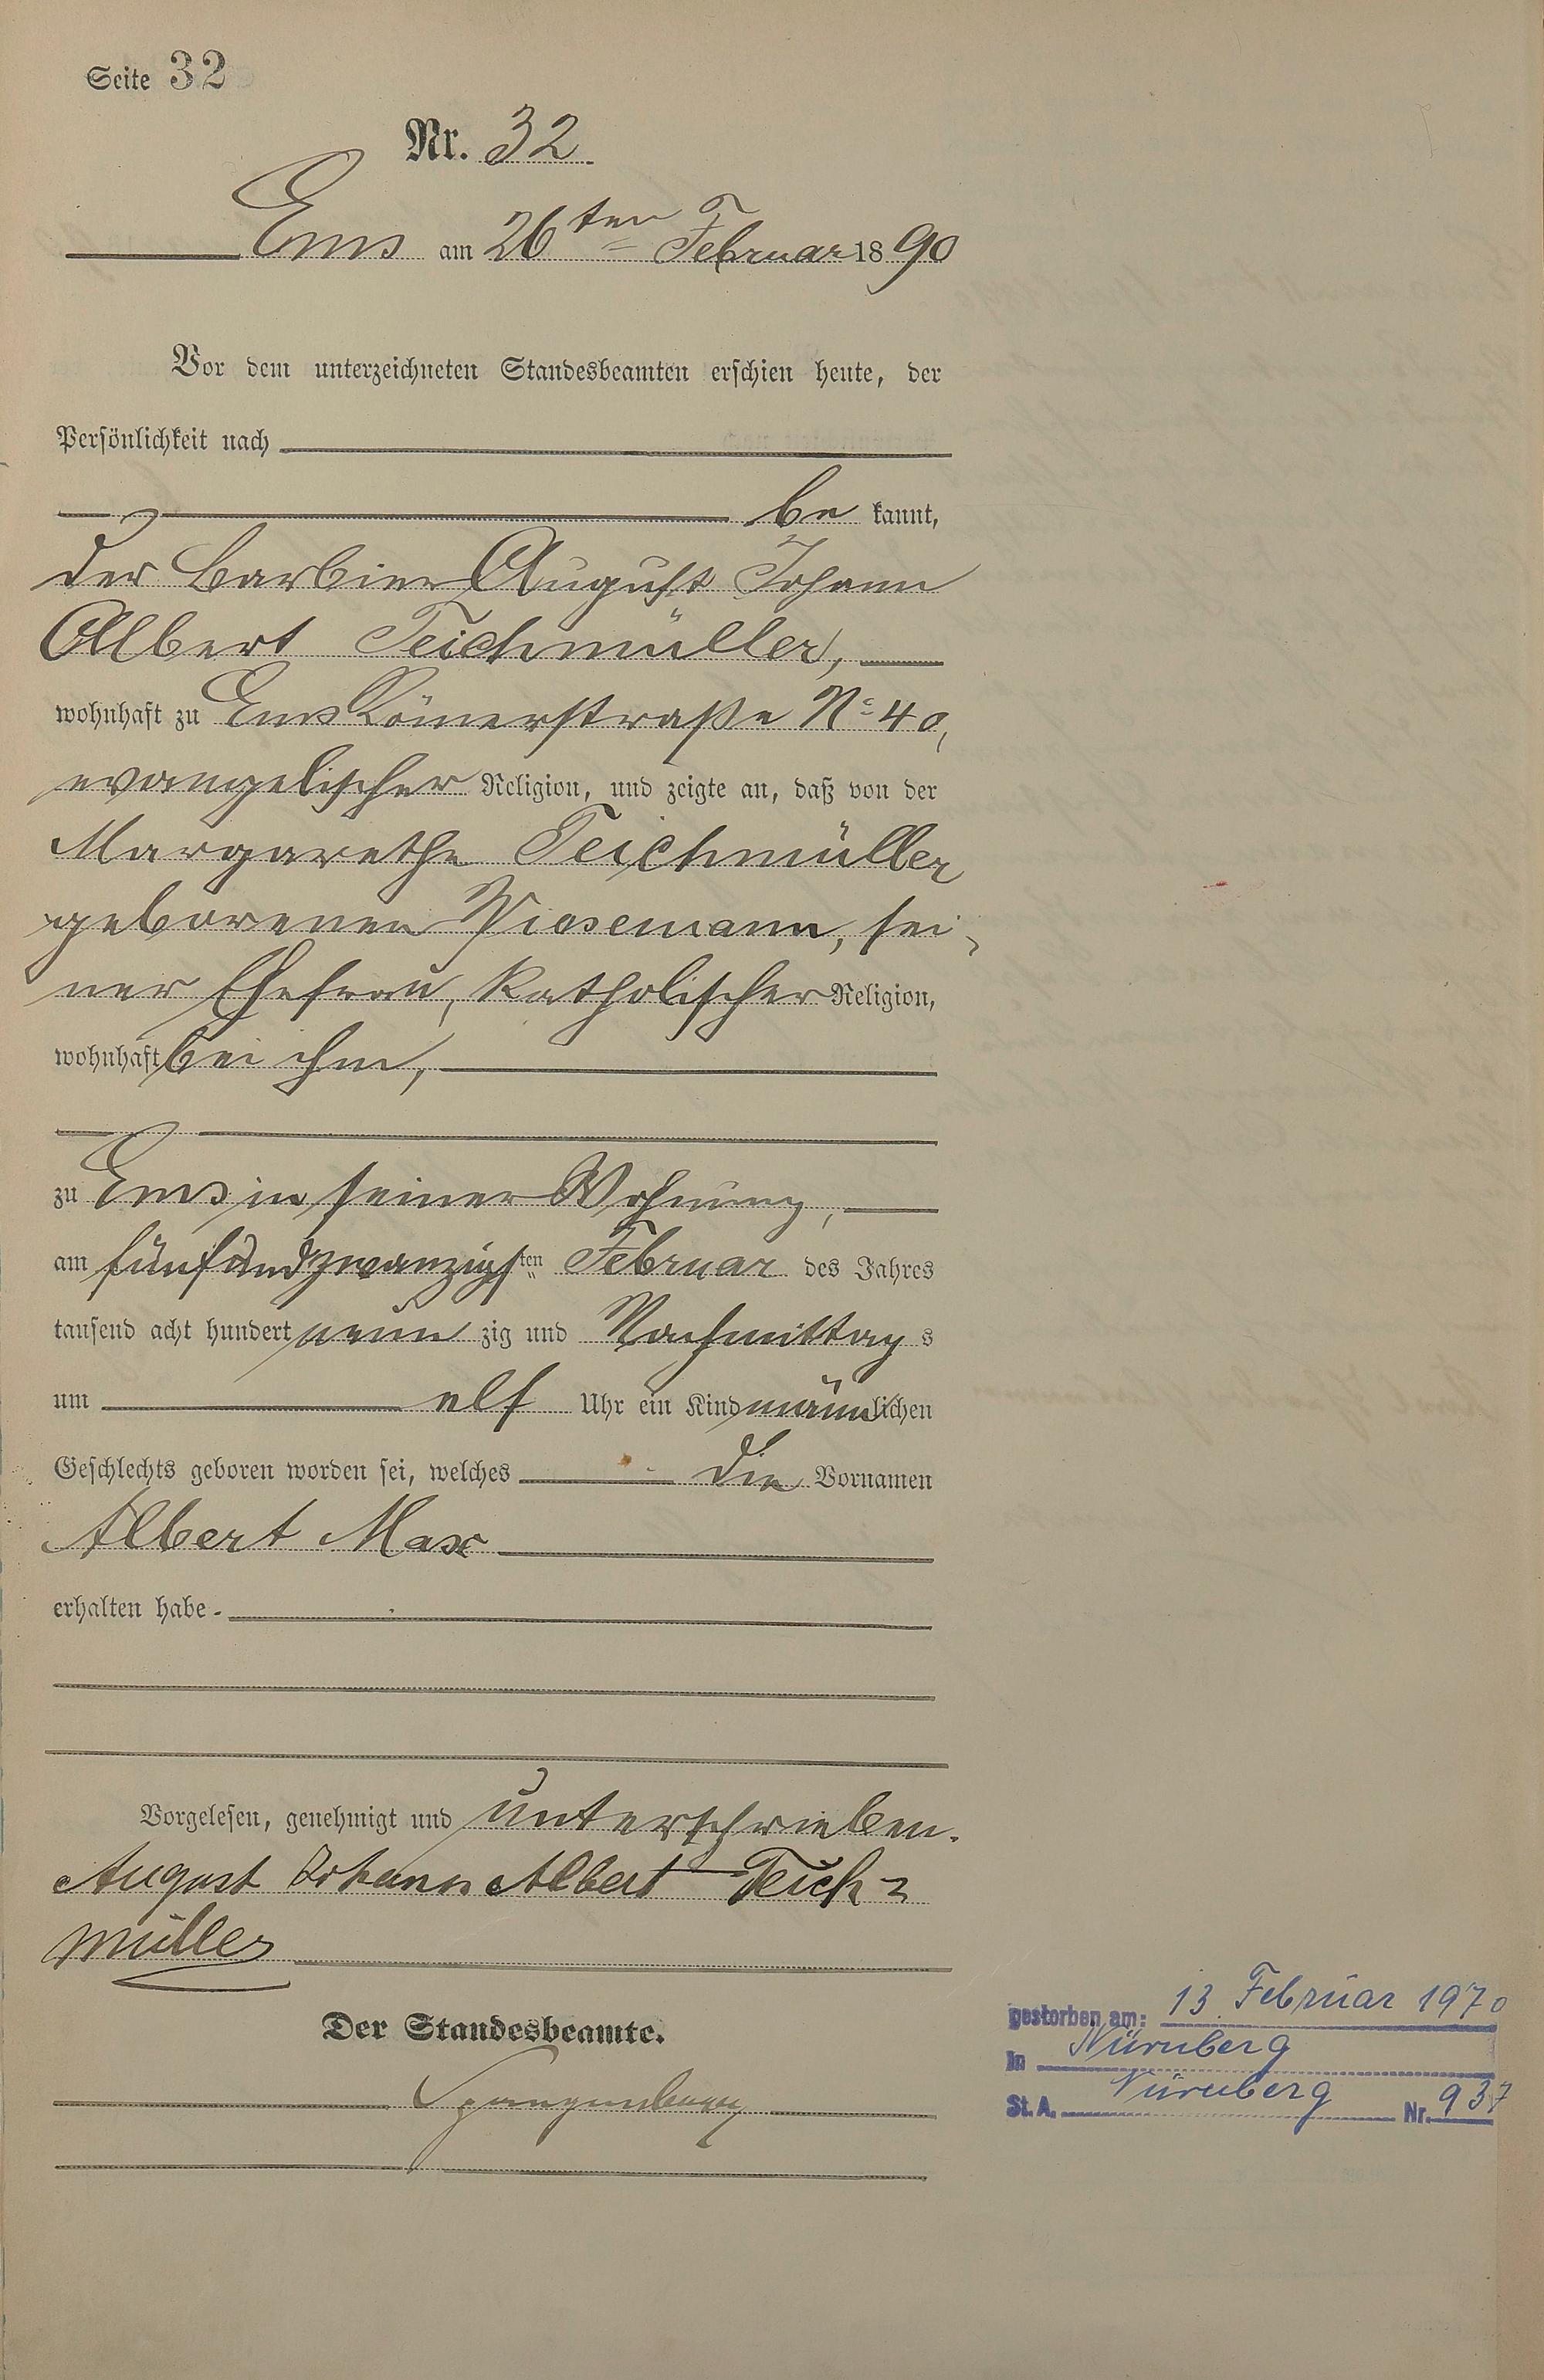 Seite 32
Nr. 32
Ems am 26ten Februar 1890
Vor dem unterzeichneten Standesbeamten erschien heute, der
Persönlichkeit nach
be kannt,
der Barbier August Johann
Albert Teichmüller,
wohnhaft zu Ems Römerstraße No 40,
evangelischer Religion, und zeigte an, daß von der
Margarethe Teichmüller
geborenen, sei-
ner Ehefrau, katholischer Religion,
wohnhaft bei ihm,
zu Ems in seiner Wohnung,
am fünfundzwanzigsten Februar des Jahres
tausend acht hundert neun zig und Nachmittag s
um elf Uhr ein Kind männlichen
Geschlechts geboren worden sei, welches die Vornamen
Albert Max
erhalten habe.
Vorgelesen, genehmigt und unterschrieben.
August Johann Albert Teich-
müller
Der Standesbeamte.
Spangenberg
gestorben am: 13. Februar 1970
In Nürnberg
St. A. Nürnberg Nr. 937